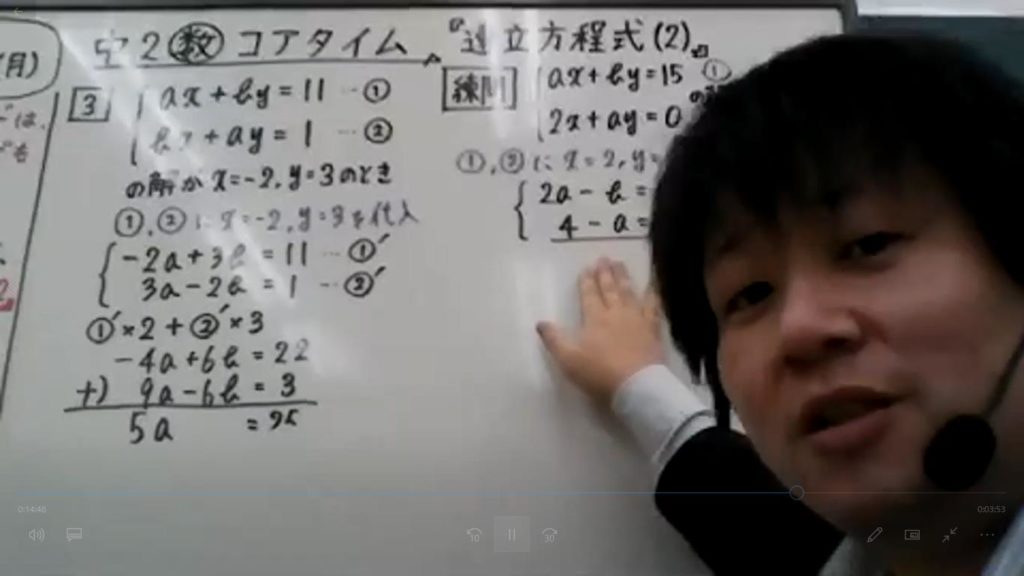 (月)
中2 数 コアタイム
『連立方程式(2)』
3
ax+by=11 … ①
bx+ay=1 … ②
の解が x=-2, y=3のとき
①, ②に x=-2, y=3を代入
-2a+3b=11 … ①′
3a-2b=1 … ②′
①′×2+②′×3
-4a+6b=22
+) 9a-6b=3
5a =25
練問
ax+by=15 ①
2x+ay=0
①, ②に x=2, y=
2a-b=
4-a=
0:14:46
0:03:53
10
30